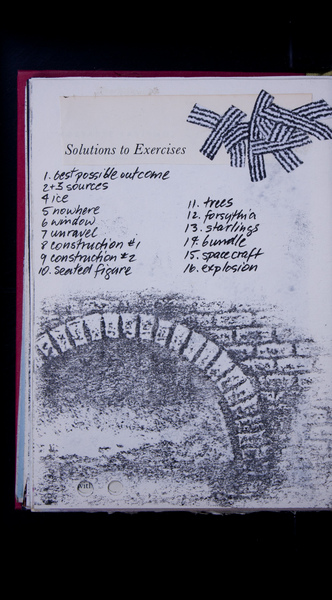 Solutions to Exercises
1. best possible outcome
2+3 sources
4 ice
5 nowhere
6 window
7 unravel
8 construction #1
9 construction #2
10. seated figure
11. trees
12. forsythia
13. starlings
14. bundle
15. spacecraft
16. explosion